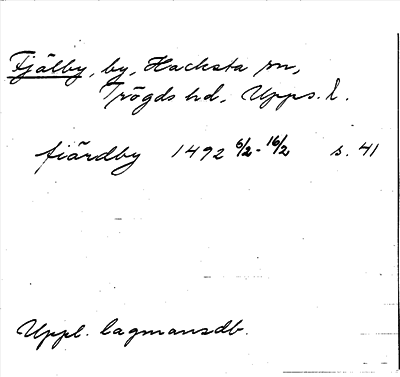 Fjälby, by, Hacksta sn,
Trögds hd, Upps. l.
fiärdby 1492 6/2-16/2 s. 41
Uppl. lagmansdb.